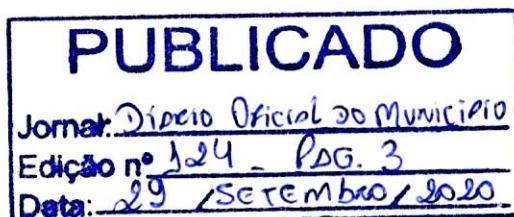 PUBLICADO
Jornal: Diário Oficial do Município
Edição nº 124 - PÁG. 3
Data: 29 / Setembro / 2020